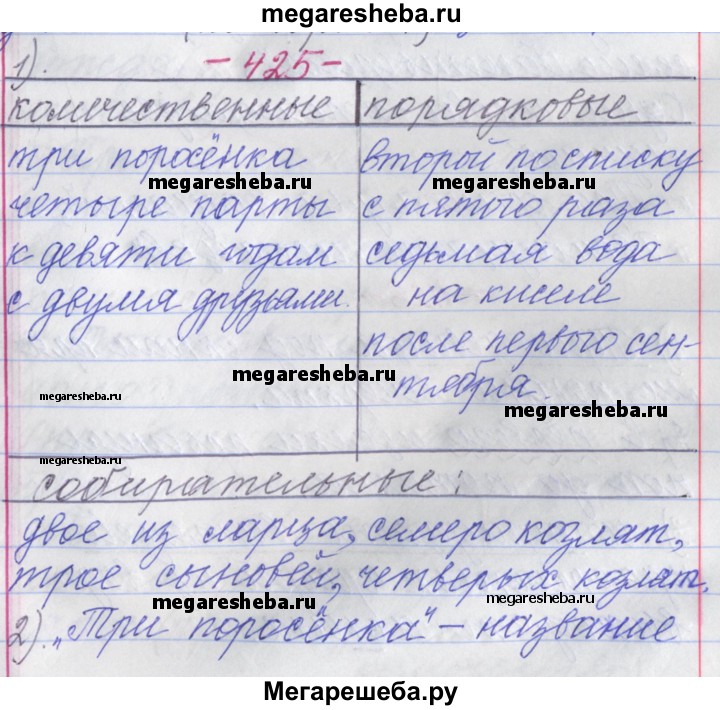 megaresheba.ru
- 425 -
1).
количественные порядковые
три поросёнка второй по списку
megaresheba.ru megaresheba.ru
четыре парты с пятого раза
к девяти годам седьмая вода
с двумя друзьями. на киселе
после первого сен-
megaresheba.ru
тября.
megaresheba.ru
megaresheba.ru
megaresheba.ru
собирательные:
двое из ларца, семеро козлят,
трое сыновей, четверых козлят.
megaresheba.ru megaresheba.ru
2). „Три поросёнка“ - название
Мегарешеба.ру